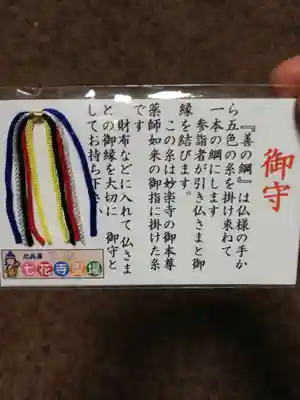 御守
『善の綱』は仏様の手か
ら五色の糸を掛け束ねて
一本の綱にします
参詣者が引き仏さまと御
縁を結びます。
この糸は妙楽寺の御本尊
薬師如来の御指に掛けた糸
です
財布などに入れて仏さま
との御縁を大切に 御守と
してお持ち下さい
北兵庫
七花寺霊場